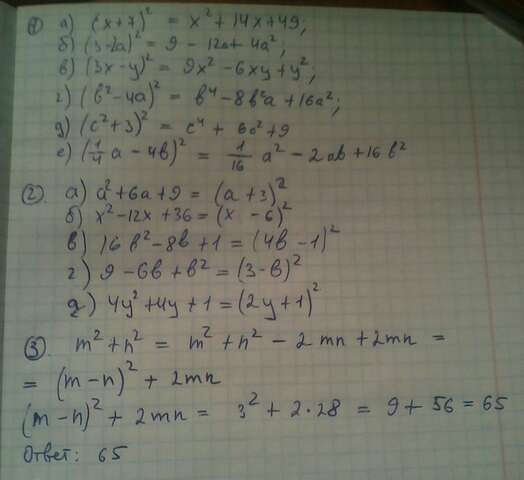 ① а) (x+7)² = x² + 14x + 49;
б) (3-2a)² = 9 - 12a + 4a²;
в) (3x-y)² = 9x² - 6xy + y²;
г) (b² - 4a)² = b⁴ - 8b²a + 16a²;
д) (c²+3)² = c⁴ + 6c² + 9
е) (1/4 a - 4b)² = 1/16 a² - 2ab + 16b²
②. а) a² + 6a + 9 = (a+3)²
б) x² - 12x + 36 = (x - 6)²
в) 16b² - 8b + 1 = (4b - 1)²
г) 9 - 6b + b² = (3-b)²
д) 4y² + 4y + 1 = (2y+1)²
③. m² + n² = m² + n² - 2mn + 2mn =
= (m-n)² + 2mn
(m-n)² + 2mn = 3² + 2·28 = 9 + 56 = 65
Ответ: 65